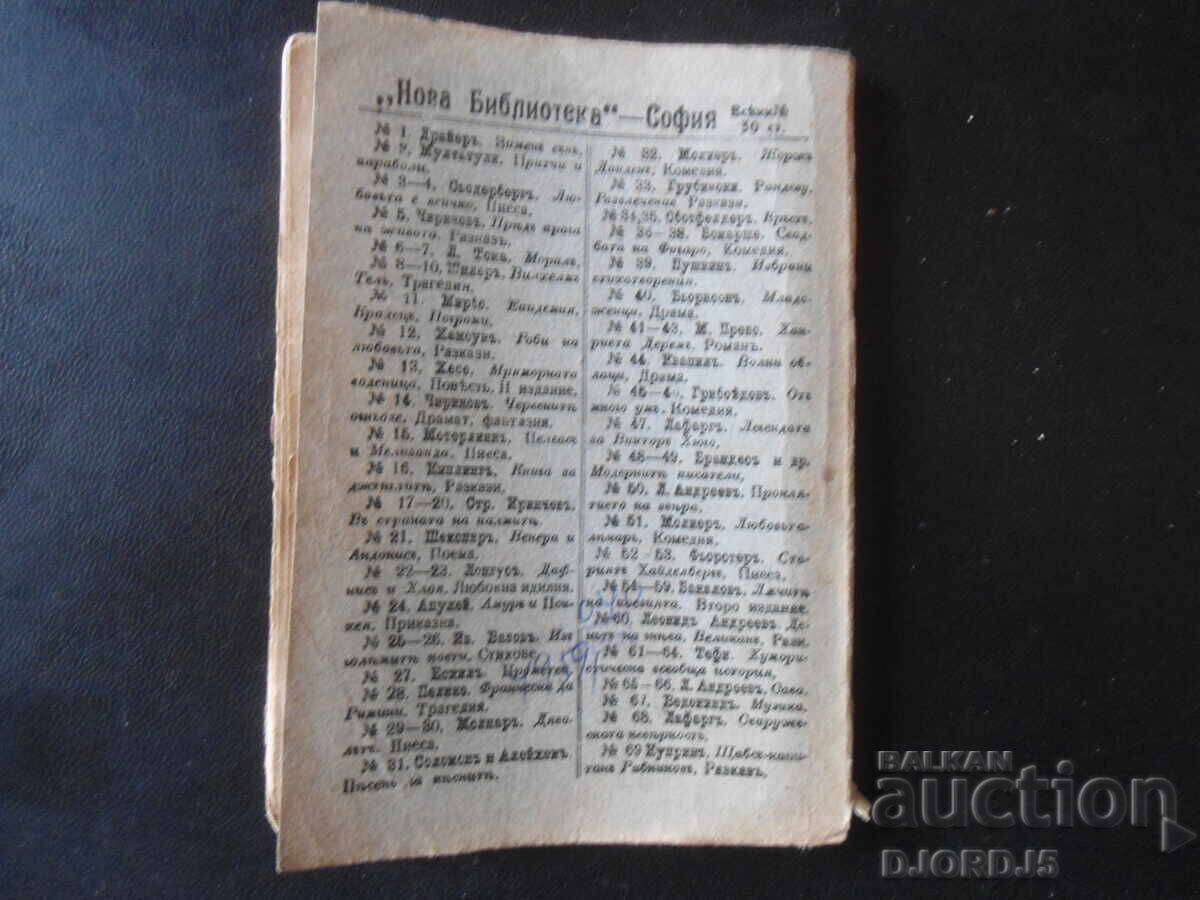 „Нова Библиотека“ — София
Всѣки №
30 ст.
№ 1. Драйеръ. Зименъ сънъ,
№ 2. Мултатули. Притчи и
параболи,
№ 3—4. Сьодербергъ. Лю-
бовьта е всичко, Пиеса,
№ 5. Чириковъ. Предъ врата
на живота. Разказъ.
№ 6—7. Л. Тома. Моралъ,
№ 8—10. Шилеръ. Вилхелмъ
Тель, Трагедия.
№ 11. Мирбо. Епидемия,
Крадецъ,
№ 12. Хамсунъ. Роби на
любовьта, Разкази.
№ 13. Хесе. Мраморната
воденица, Повѣсть. II издание.
№ 14. Чириковъ. Червенитѣ
огньове. Драмат. фантазия.
№ 15. Метерлинкъ. Пелеасъ
и Мелизанда. Пиеса.
№ 16. Киплингъ. Книга за
джунглитѣ, Разкази.
№ 17—20. Стр. Кринчевъ.
Въ страната на палмитѣ.
№ 21. Шекспиръ. Венера и
Адонисъ, Поема.
№ 22—23. Лонгусъ. Даф-
нисъ и Хлоя. Любовна идилия.
№ 24. Апулей. Амуръ и Пси-
хея. Приказка.
№ 25—26. Ив. Вазовъ. Из-
браните Стихове.
№ 27. Есхилъ. Прометей,
№ 28. Пелико. Франческа да
Римини. Трагедия.
№ 29—30. Молнаръ. Дяво-
лътъ. Пиеса.
№ 31. Соломонъ и Алейхемъ.
Пѣсень за пѣснитѣ.
№ 32. Молиеръ. Жоржъ
Данденъ, Комедия.
№ 33. Грубински. Рандеву,
Развлечение Разкази.
№ 34,35. Обстфелдеръ. Кръстъ.
№ 36—38. Бомарше. Свад-
бата на Фигаро, Комедия.
№ 39. Пушкинъ. Избрани
стихотворения.
№ 40. Бьорнсонъ. Младо-
женци, Драма.
№ 41—43. М. Прево. Хан-
риета Дерем. Романъ.
№ 44. Квапилъ. Волни об-
лаци, Драма.
№ 45—46. Грибоѣдовъ. Отъ
много умъ. Комедия.
№ 47. Лафаргъ. Легендата
за Викторъ Хюго,
№ 48—49. Брандесъ и др.
Модернитѣ писатели,
№ 50. Л. Андреевъ. Прокля-
тието на звѣра,
№ 51. Молиеръ. Любовьта-
лѣкарь, Комедия.
№ 52—53. Фьорстеръ. Ста-
риятъ Хайделбергъ, Пиеса,
№ 54—59. Бакаловъ.
на поезията. Второ издание.
№ 60. Леонидъ Андреевъ. Де-
ньтъ на гнѣва, Великанъ, Разк.
№ 61—64. Тефи. Хумори-
стическа всеобща история,
№ 65—66. Л. Андреевъ. Сава.
№ 67. Ведекиндъ. Музика.
№ 68. Лафаргъ.
невѣрность,
№ 69 Купринъ. Щабсъ-капи-
танъ Рибниковъ, Разказъ,
BALKAN
auction
DJORDJ5